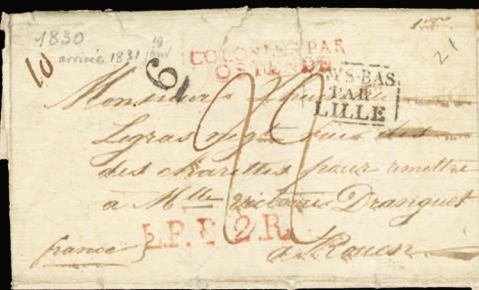 1830
arrivée 1831 19
COLONIES PAR
OSTENDE
PAYS-BAS
PAR
LILLE
21
10
Monsieur
Legras
des charettes pour remettre
à Mlle Victoire Dranguet
L.P.B.2.R.
france à Rouen